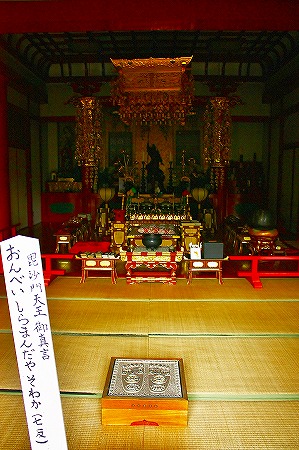 毘沙門天王 御真言
おんべいしらまんだや そわか（七反）